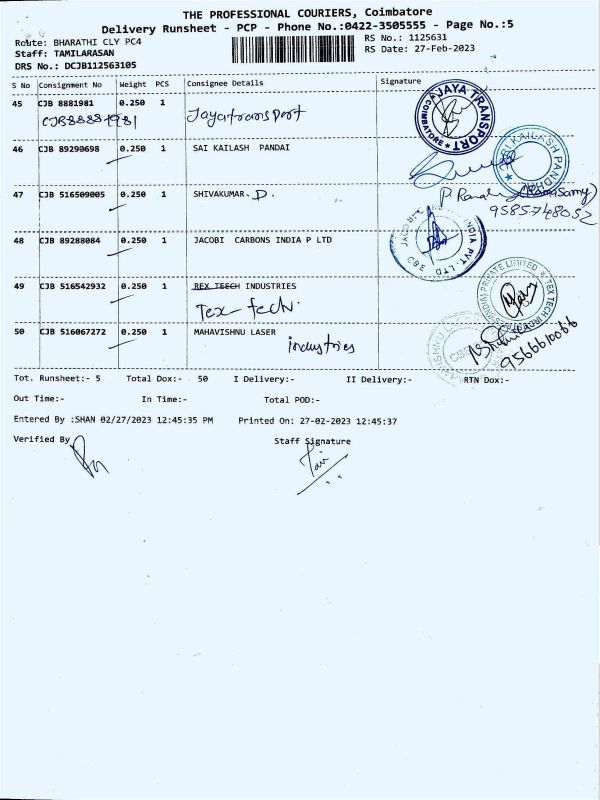 THE PROFESSIONAL COURIERS, Coimbatore
Delivery Runsheet - PCP - Phone No.:0422-3505555 - Page No.:5
Route: BHARATHI CLY PC4
RS No.: 1125631
Staff: TAMILARASAN
RS Date: 27-Feb-2023
DRS No.: DCJB112563105
S No Consignment No Weight PCS Consignee Details Signature
45 CJB 8881981 0.250 1 Jayatransport
CJB88881981
JAYA TRANSPORT
COIMBATORE
46 CJB 89290698 0.250 1 SAI KAILASH PANDAI
KAILASH PANDHI
47 CJB 516509005 0.250 1 SHIVAKUMAR. D.
9585748052
48 CJB 89288084 0.250 1 JACOBI CARBONS INDIA P LTD
INDIA PVT. LTD
CBE
49 CJB 516542932 0.250 1 REX TEECH INDUSTRIES
Tex tech.
(INDIA) PRIVATE LIMITED
TEX TECH INDU
50 CJB 516067272 0.250 1 MAHAVISHNU LASER
industries
9566610066
Tot. Runsheet:- 5 Total Dox:- 50 I Delivery:- II Delivery:- RTN Dox:-
Out Time:- In Time:- Total POD:-
Entered By :SHAN 02/27/2023 12:45:35 PM Printed On: 27-02-2023 12:45:37
Verified By Staff Signature